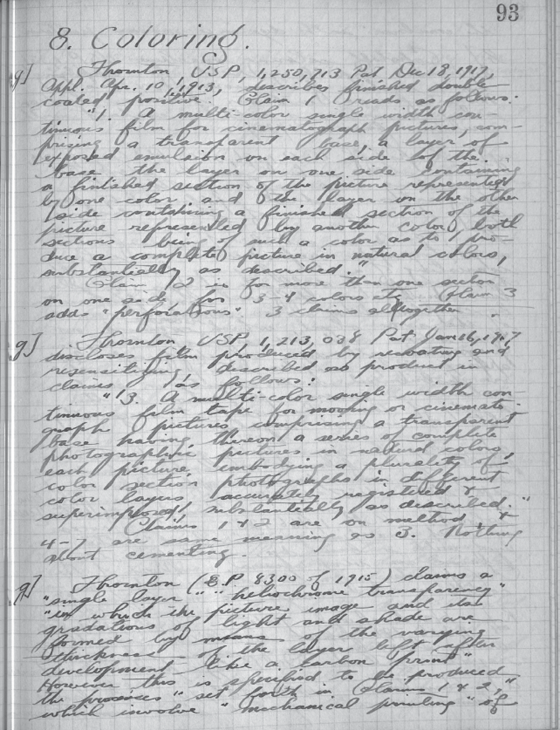 93
8. Coloring.
g) Thornton USP, 1,250,713 Pat. Dec 18, 1917,
Appl. Apr. 10, 1913, describes finished double
coated positive. Claim 1 reads as follows:
"1. A multi-color single width con-
tinuous film for cinematograph pictures, com-
prising a transparent base, a layer of
exposed emulsion on each side of the
base the layer on one side containing
a finished section of the picture represented
by one color and the layer on the other
side containing a finished section of the
picture represented by another color, both
sections being of such a color as to pro-
duce a complete picture in natural colors,
substantially as described."
Claim 2 is for more than one section
on one side for 3-4 colors etc. Claim 3
adds "perforations". 3 claims altogether.
g) Thornton USP, 1,213,038 Pat. Jan 16, 1917
discloses film produced by recoating and
resensitizing described as product in
claims as follows:
"3. A multi-color single width con
tinuous film tape for moving or cinemato-
graph pictures comprising a transparent
base having thereon a series of complete
photographic pictures in natural colors,
each picture embodying a plurality of
color section photographs in different
color layers, accurately registered &
superimposed, substantially as described."
Claims 1 & 2 are on method, &
4-7 are same meaning as 3. Nothing
about cementing.
g) Thornton (B.P 8300 of 1915) claims a
"single layer heliochrome transparency"
"in which the picture image and its
gradations of light and shade are
formed by means of the varying
thickness of the layer left after
development like a carbon print"
However this is specified to be produced
the process "set forth in Claims 1 & 2,"
which involve "mechanical printing" of